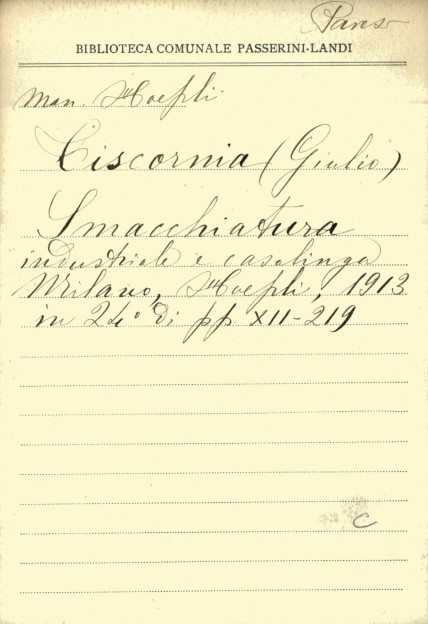 BIBLIOTECA COMUNALE PASSERINI-LANDI
Man. Hoepli
Ciscornia (Giulio)
Smacchiatura
industriale e casalinga
Milano, Hoepli, 1913
in 24° di pp XII-219
C